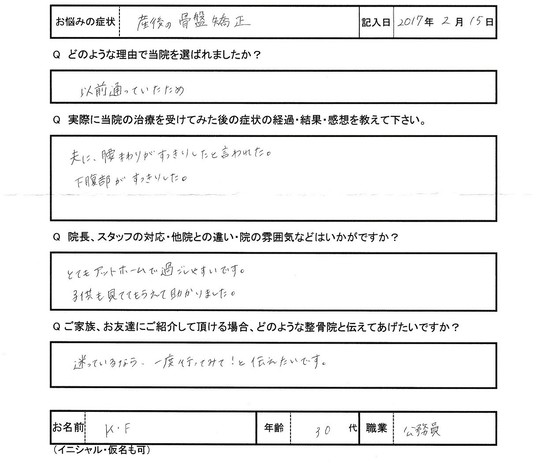 お悩みの症状 産後の骨盤矯正 記入日 2017年 2月 15日
Q どのような理由で当院を選ばれましたか？
以前通っていたため
Q 実際に当院の治療を受けてみた後の症状の経過・結果・感想を教えて下さい。
夫に、腰まわりがすっきりしたと言われた。
下腹部がすっきりした。
Q 院長、スタッフの対応・他院との違い・院の雰囲気などはいかがですか？
とてもアットホームで過ごしやすいです。
子供も見ててもらえて助かりました。
Q ご家族、お友達にご紹介して頂ける場合、どのような整骨院と伝えてあげたいですか？
迷っているなら、一度行ってみて！と伝えたいです。
お名前 K・F 年齢 30 代 職業 公務員
（イニシャル・仮名も可）